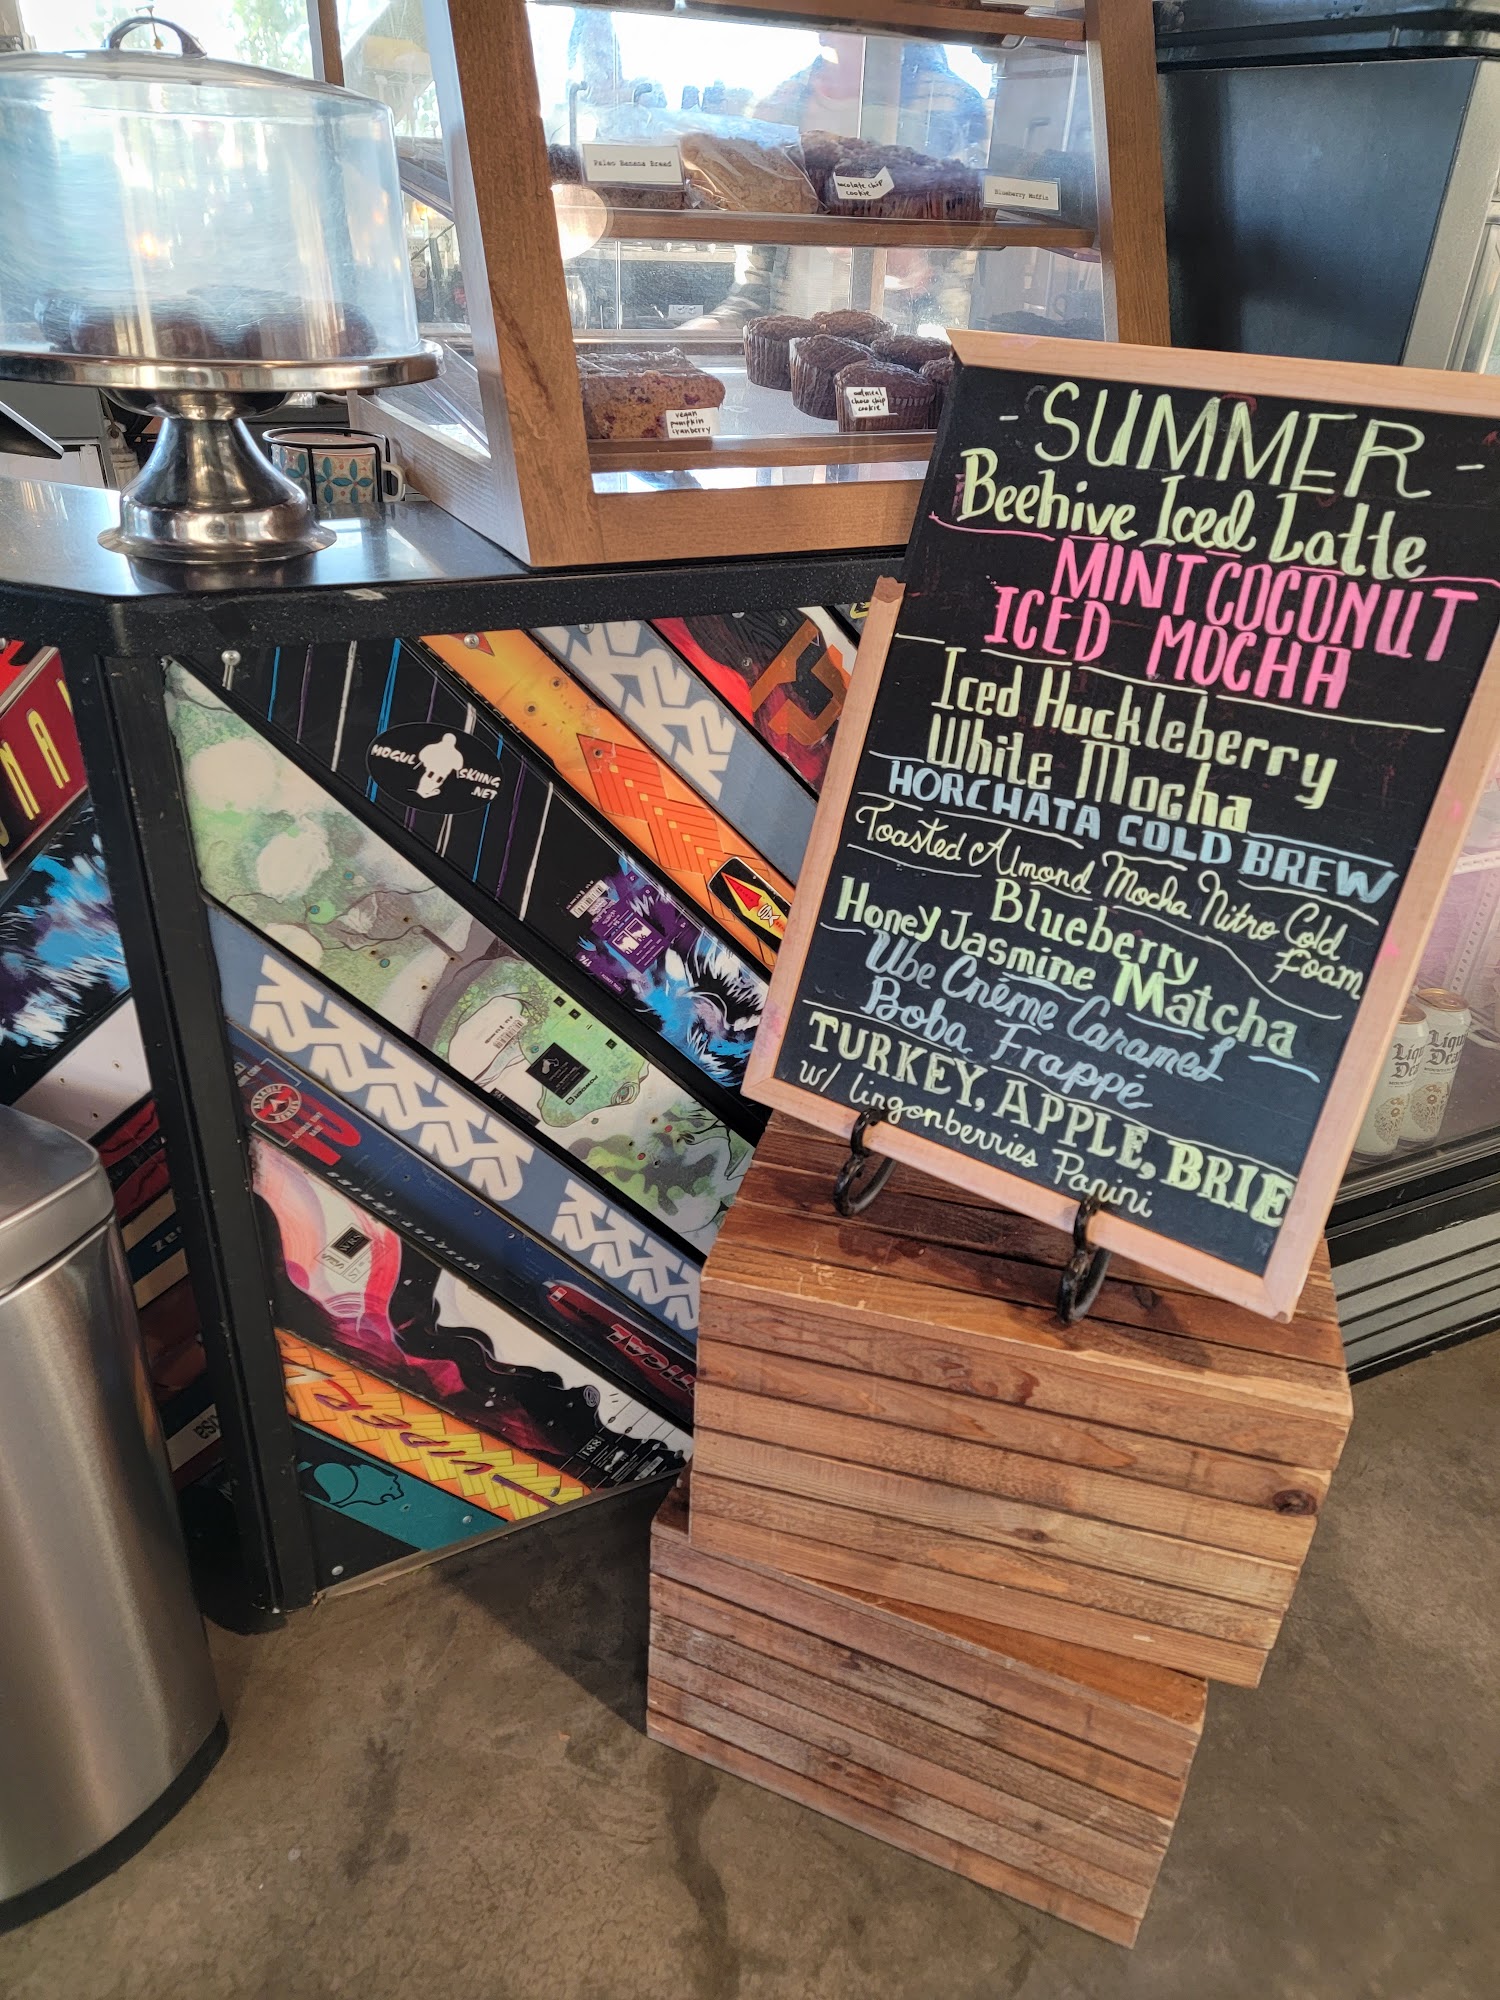 Paleo Banana Bread
chocolate chip
cookie
Blueberry Muffin
vegan
pumpkin
cranberry
oatmeal
choco chip
cookie
- SUMMER -
Beehive Iced Latte
MINT COCONUT
ICED MOCHA
Iced Huckleberry
White Mocha
HORCHATA COLD BREW
Toasted Almond Mocha Nitro Cold
Foam
Blueberry
Honey Jasmine Matcha
Ube Crème Caramel
Boba Frappé
TURKEY, APPLE, BRIE
w/ lingonberries Panini
MOGUL SKIING
.NET
WRS
188